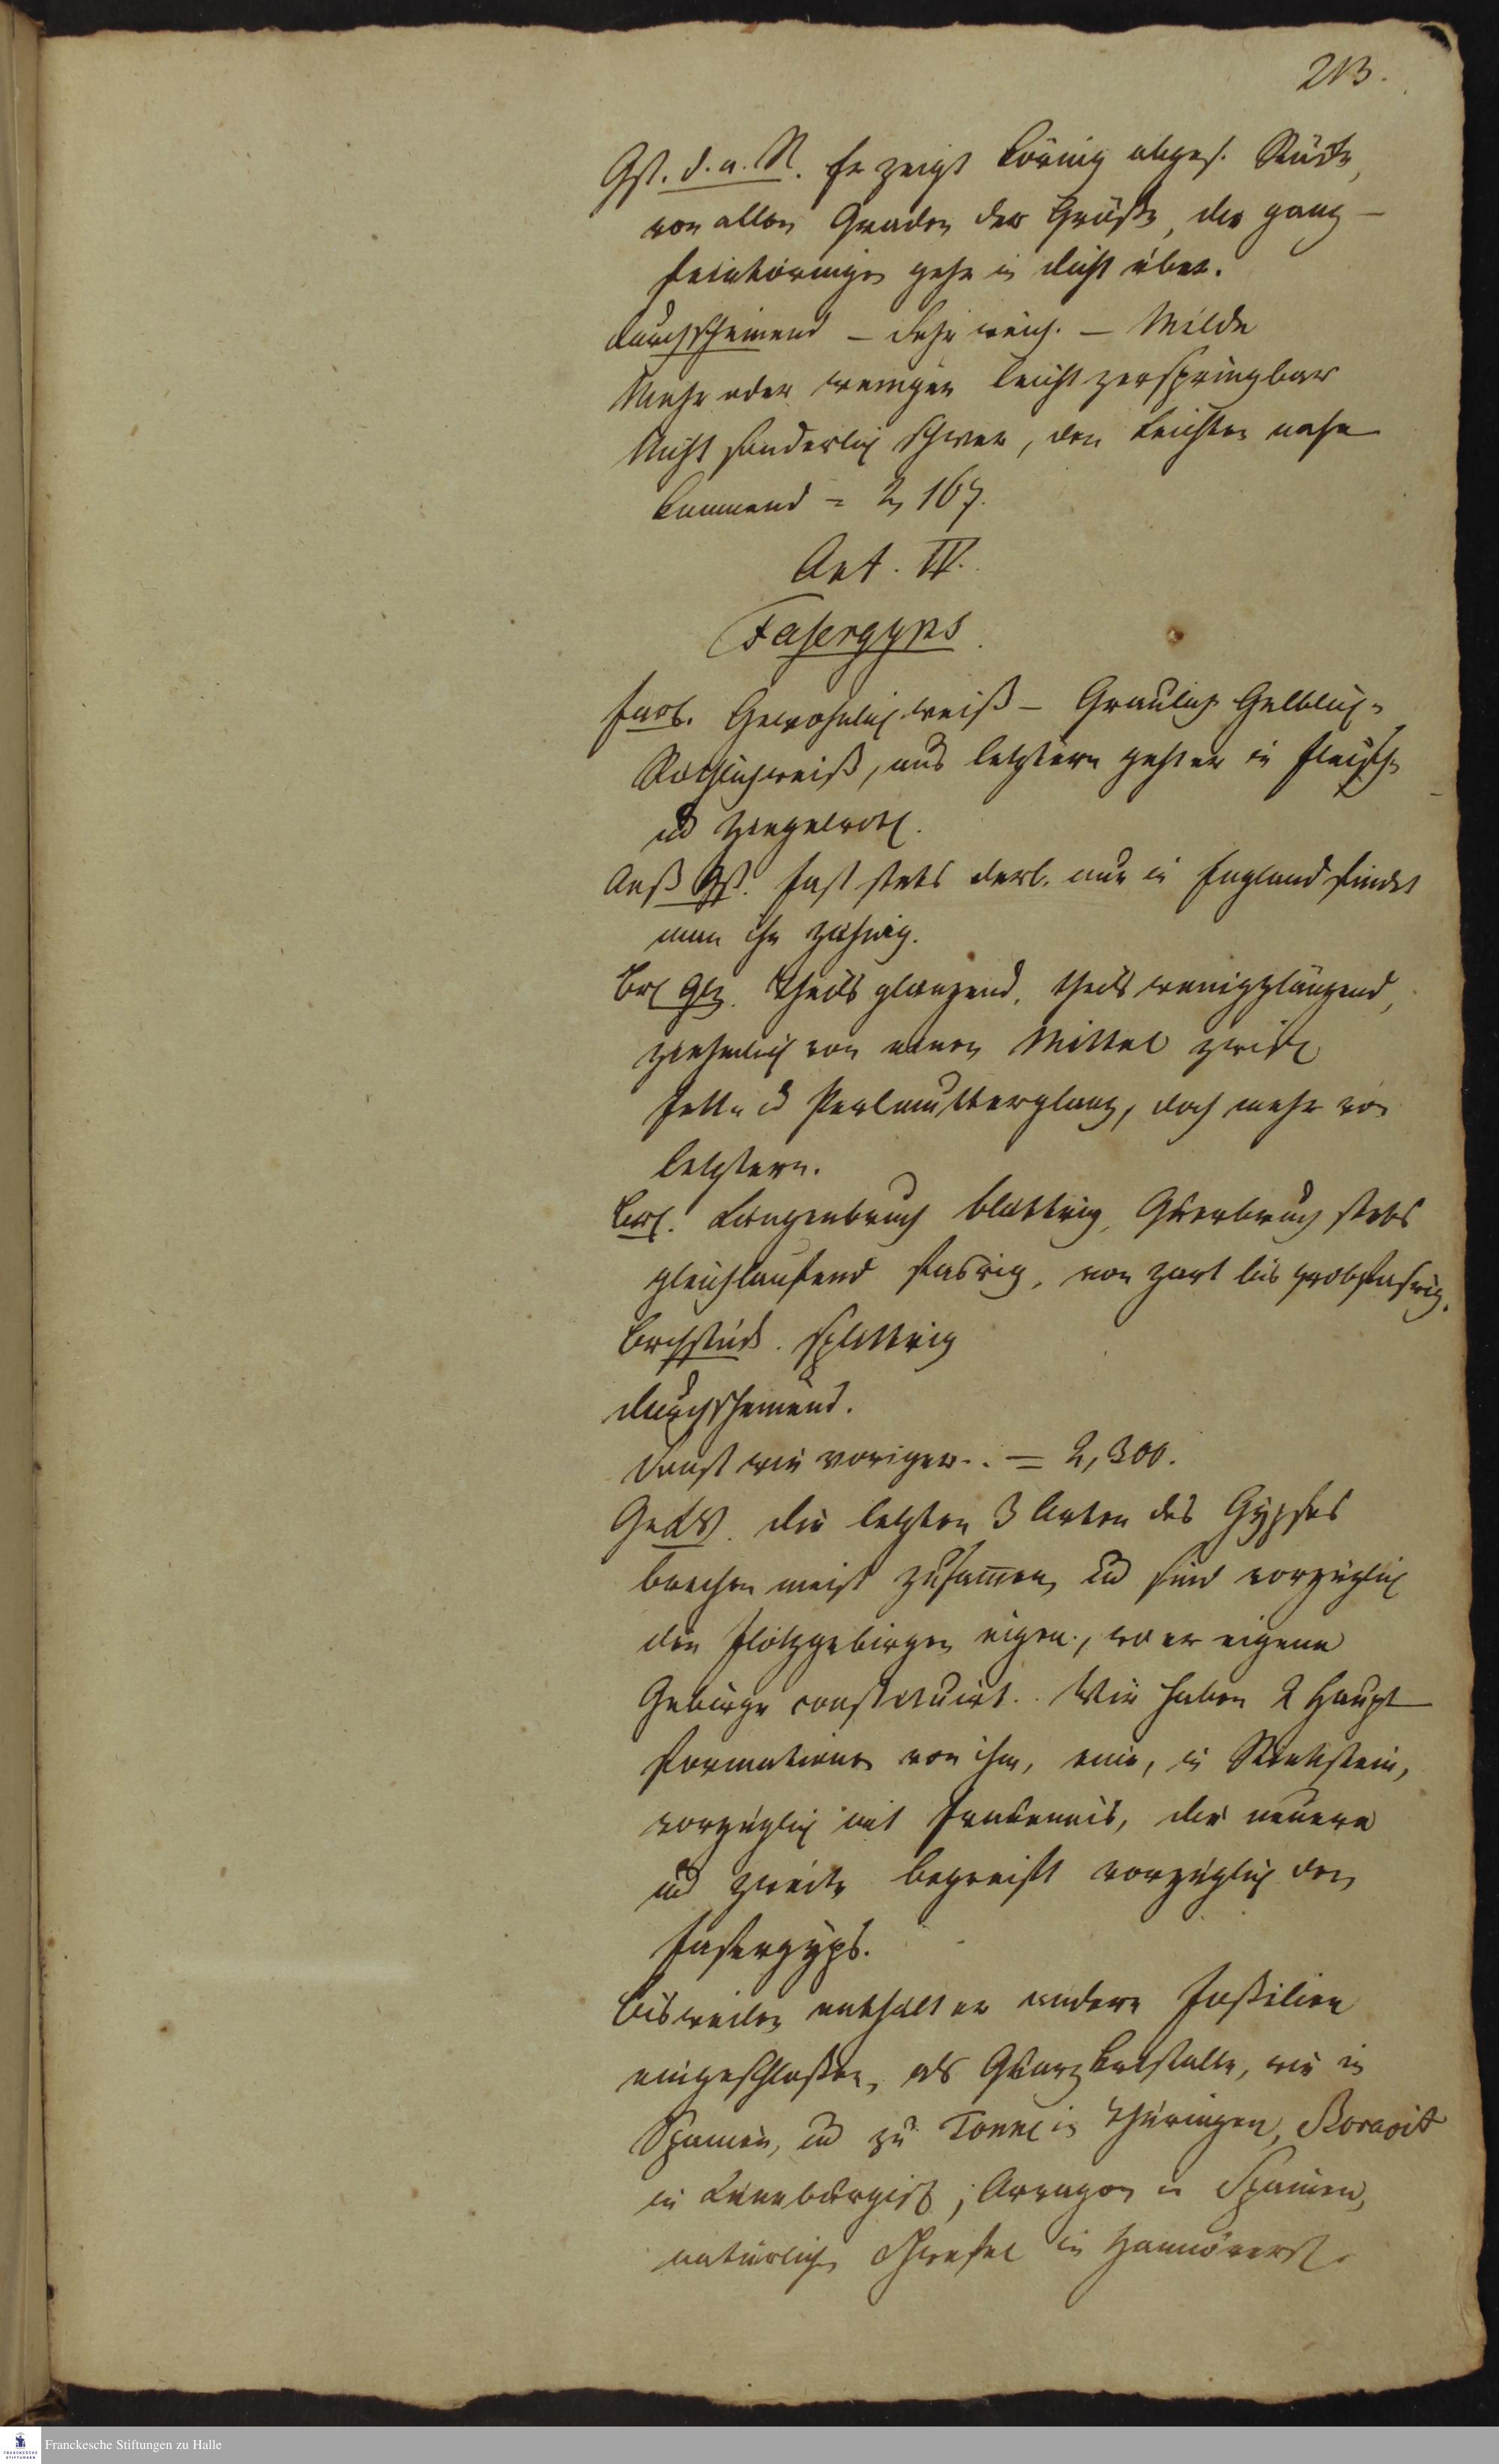 213.
Gst. d. a. St. Er zeigt körnig abges. Stücke,
von allen Graden der Größe, die ganz
feinkörnigen gehn in dicht über.
durchscheinend – sehr weich. – Milde
Mehr oder weniger leicht zerspringbar
Nicht sonderlich schwer, den leichten nahe
kommend = 2, 167.
Art. IV.
Fasergyps.
Farb. Gewöhnlich weiß – Graulich Gelblich-
Röthlichweiß, aus letzterm geht er in Fleisch-
und Ziegelroth.
Aeuß Gst. fast stets derb. nur in England findet
man ihn
Brch Glz. Theils glänzend, theils wenigglänzend,
von einem Mittel zwisch
Fett- u Perlmutterglanz, doch mehr von
letzterm.
Brch. Längenbruch blättrig, Querbruch stets
gleichlaufend fasrig, von zart bis grobfasrig.
Brchstück. splittrig
durchscheinend.
Sonst wie voriger. = 2,300.
die letzten 3 Arten des Gypses
brechen meist zusammen, und sind vorzüglich
den Flötzgebirgen eigen, wo er eigene
Gebirge constituirt. Wir haben 2 Haupt
formationen von ihm, eine, in Stinkstein,
vorzüglich mit Fraueneis, die neuere
und zweite begreift vorzüglich den
Fasergyps.
Bisweilen enthält er andere Foßilien
eingeschloßen, als Quarzkristalle, wie in
Spanien, und zu Tonne in Thüringen, Boracit
in Lüneburgisch; Arragon in Spanien,
natürlichen Schwefel in Hannöversch.
Franckesche Stiftungen zu Halle